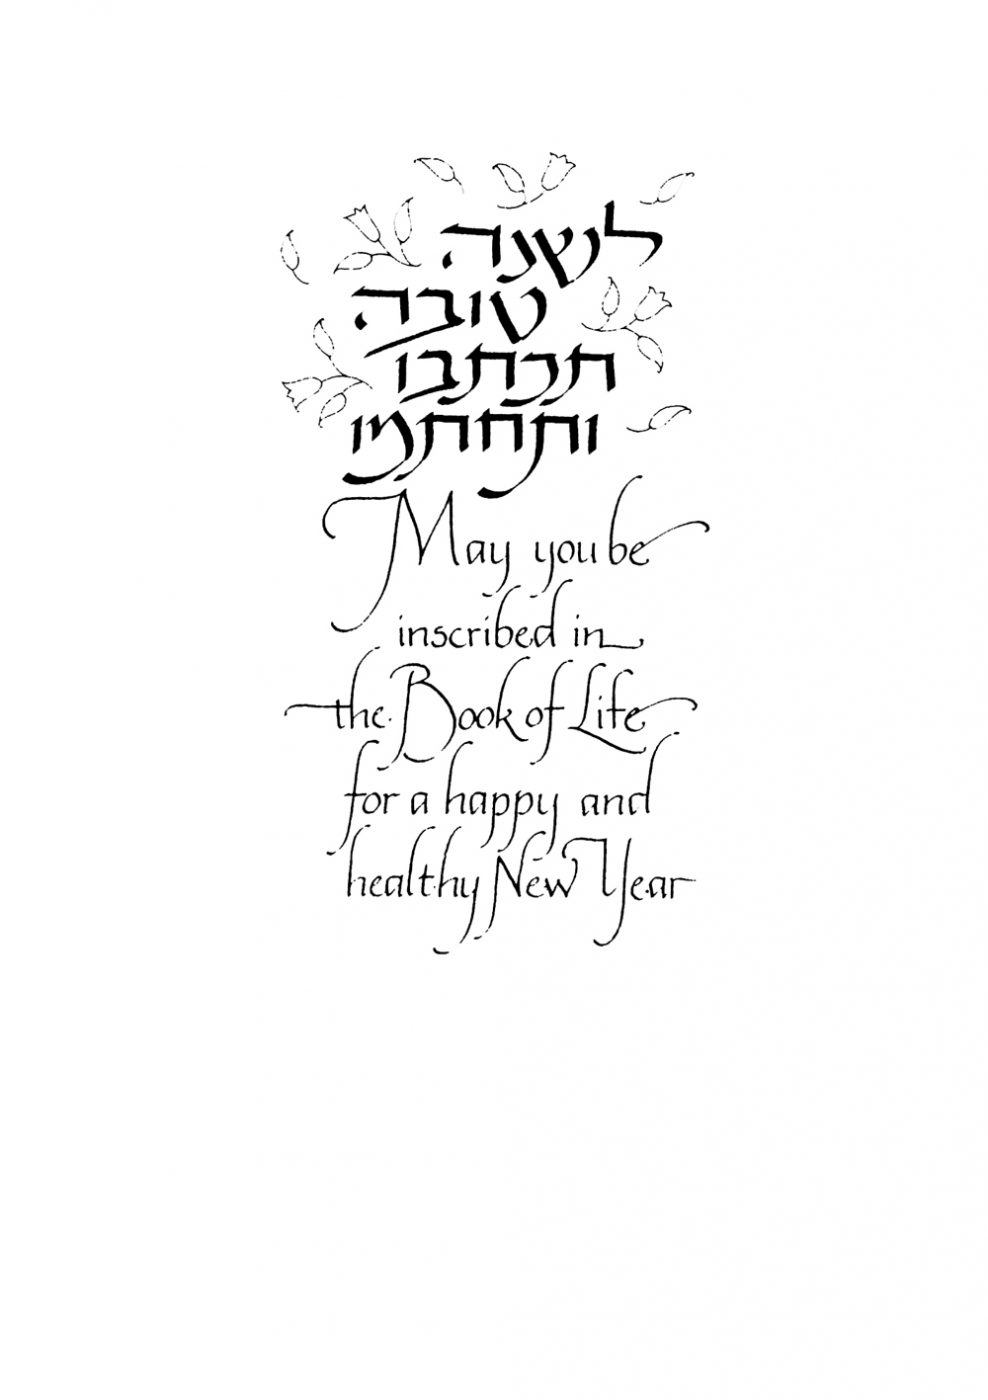 לשנה
טובה
תכתבו
ותחתמו
May you be
inscribed in
the Book of Life
for a happy and
healthy New Year